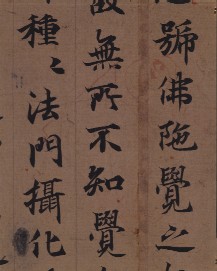 號佛陁覺之
無所不知覺
種〻法門攝化